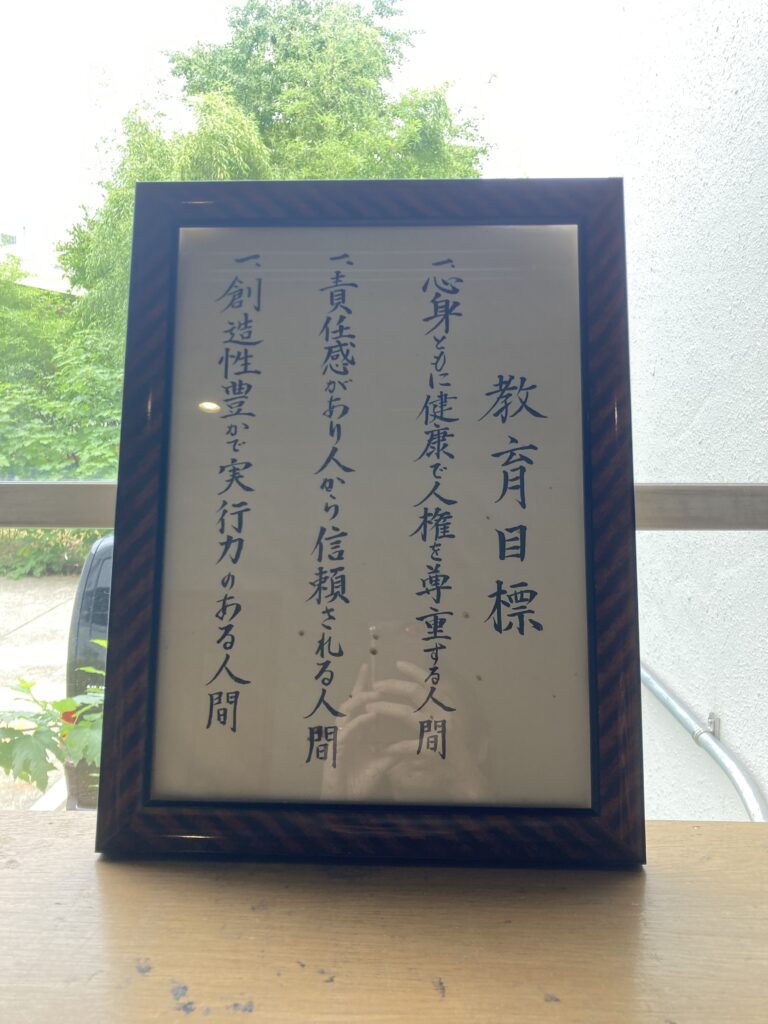 教育目標
一、心身ともに健康で人権を尊重する人間
一、責任感があり人から信頼される人間
一、創造性豊かで実行力のある人間